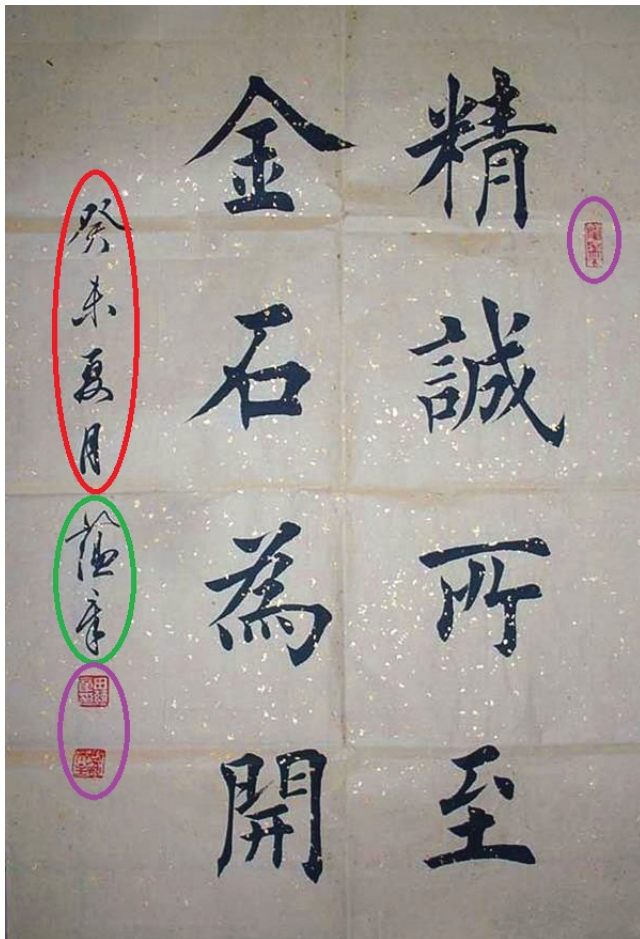 精誠所至
金石為開
癸未夏月
蘊章